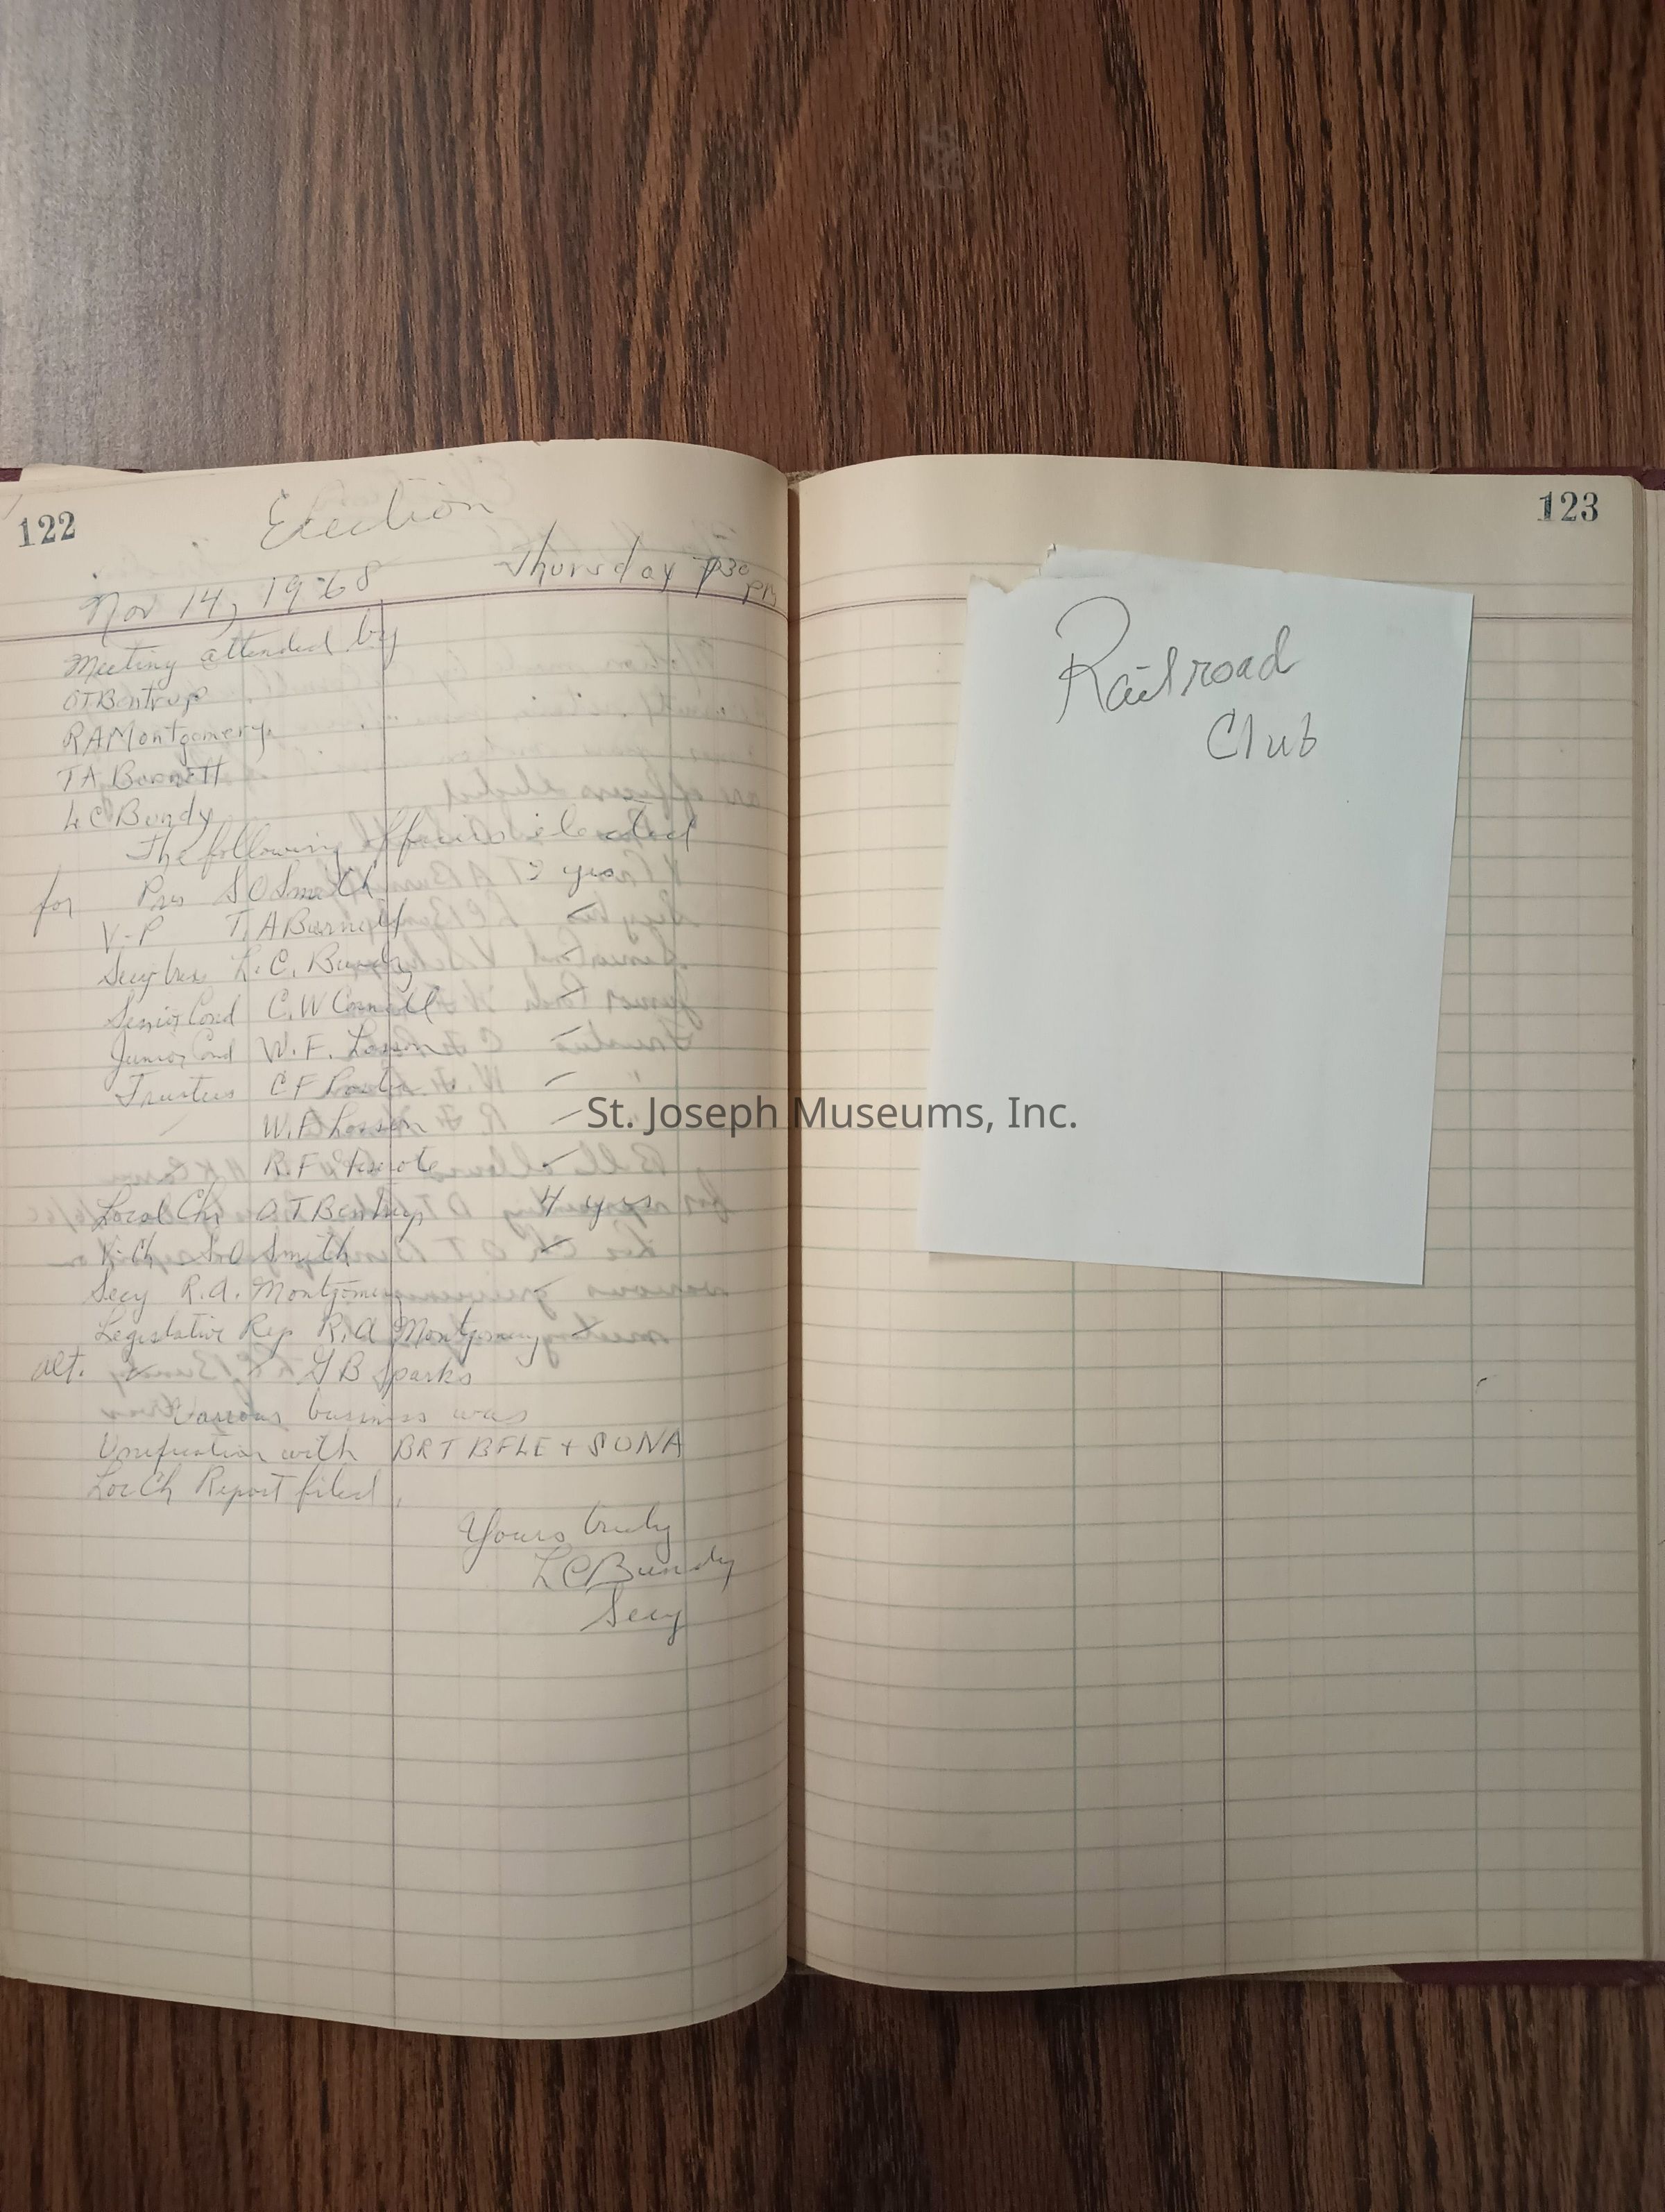 122
Election
Nov 14, 1968 Thursday 7:30 PM
Meeting attended by
OTBentrup
RAMontgomery
TA Burnett
LCBundy
The following officers elected
for Pres SO Smith 2 yrs
V-P T.A Burnett
Secy tres L.C. Bundy
Senior Cond C.W Connell
Junior Cond W.F. Losson
Trustees CF
W.F Losson
R.F
Local Ch OT Bentrup 4 yrs
V-Ch SO Smith
Secy R.A. Montgomery
Legislative Rep R.A Montgomery
alt. B Sparks
Various business was
Unification with BRT BFLE + SUNA
LocCh Report filed,
Yours truly
LCBundy
Secy
123
Railroad
Club
St. Joseph Museums, Inc.